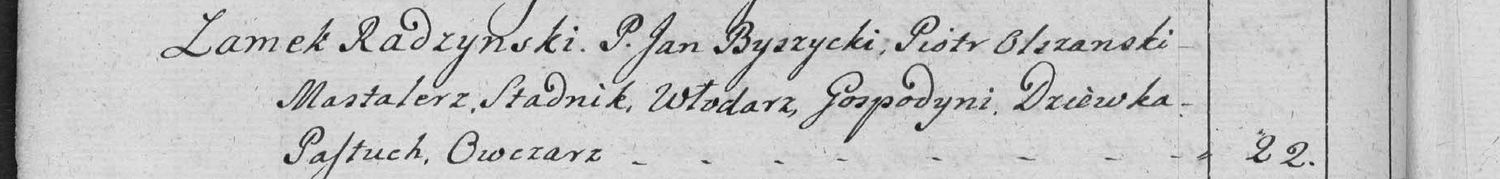 Zamek Radzynski. P. Jan Byszycki, Piotr Olszanski
Mastalerz, Stadnik, Włodarz, Gospodyni, Dziewka
Pastuch, Owczarz - - - - - - - - 22.